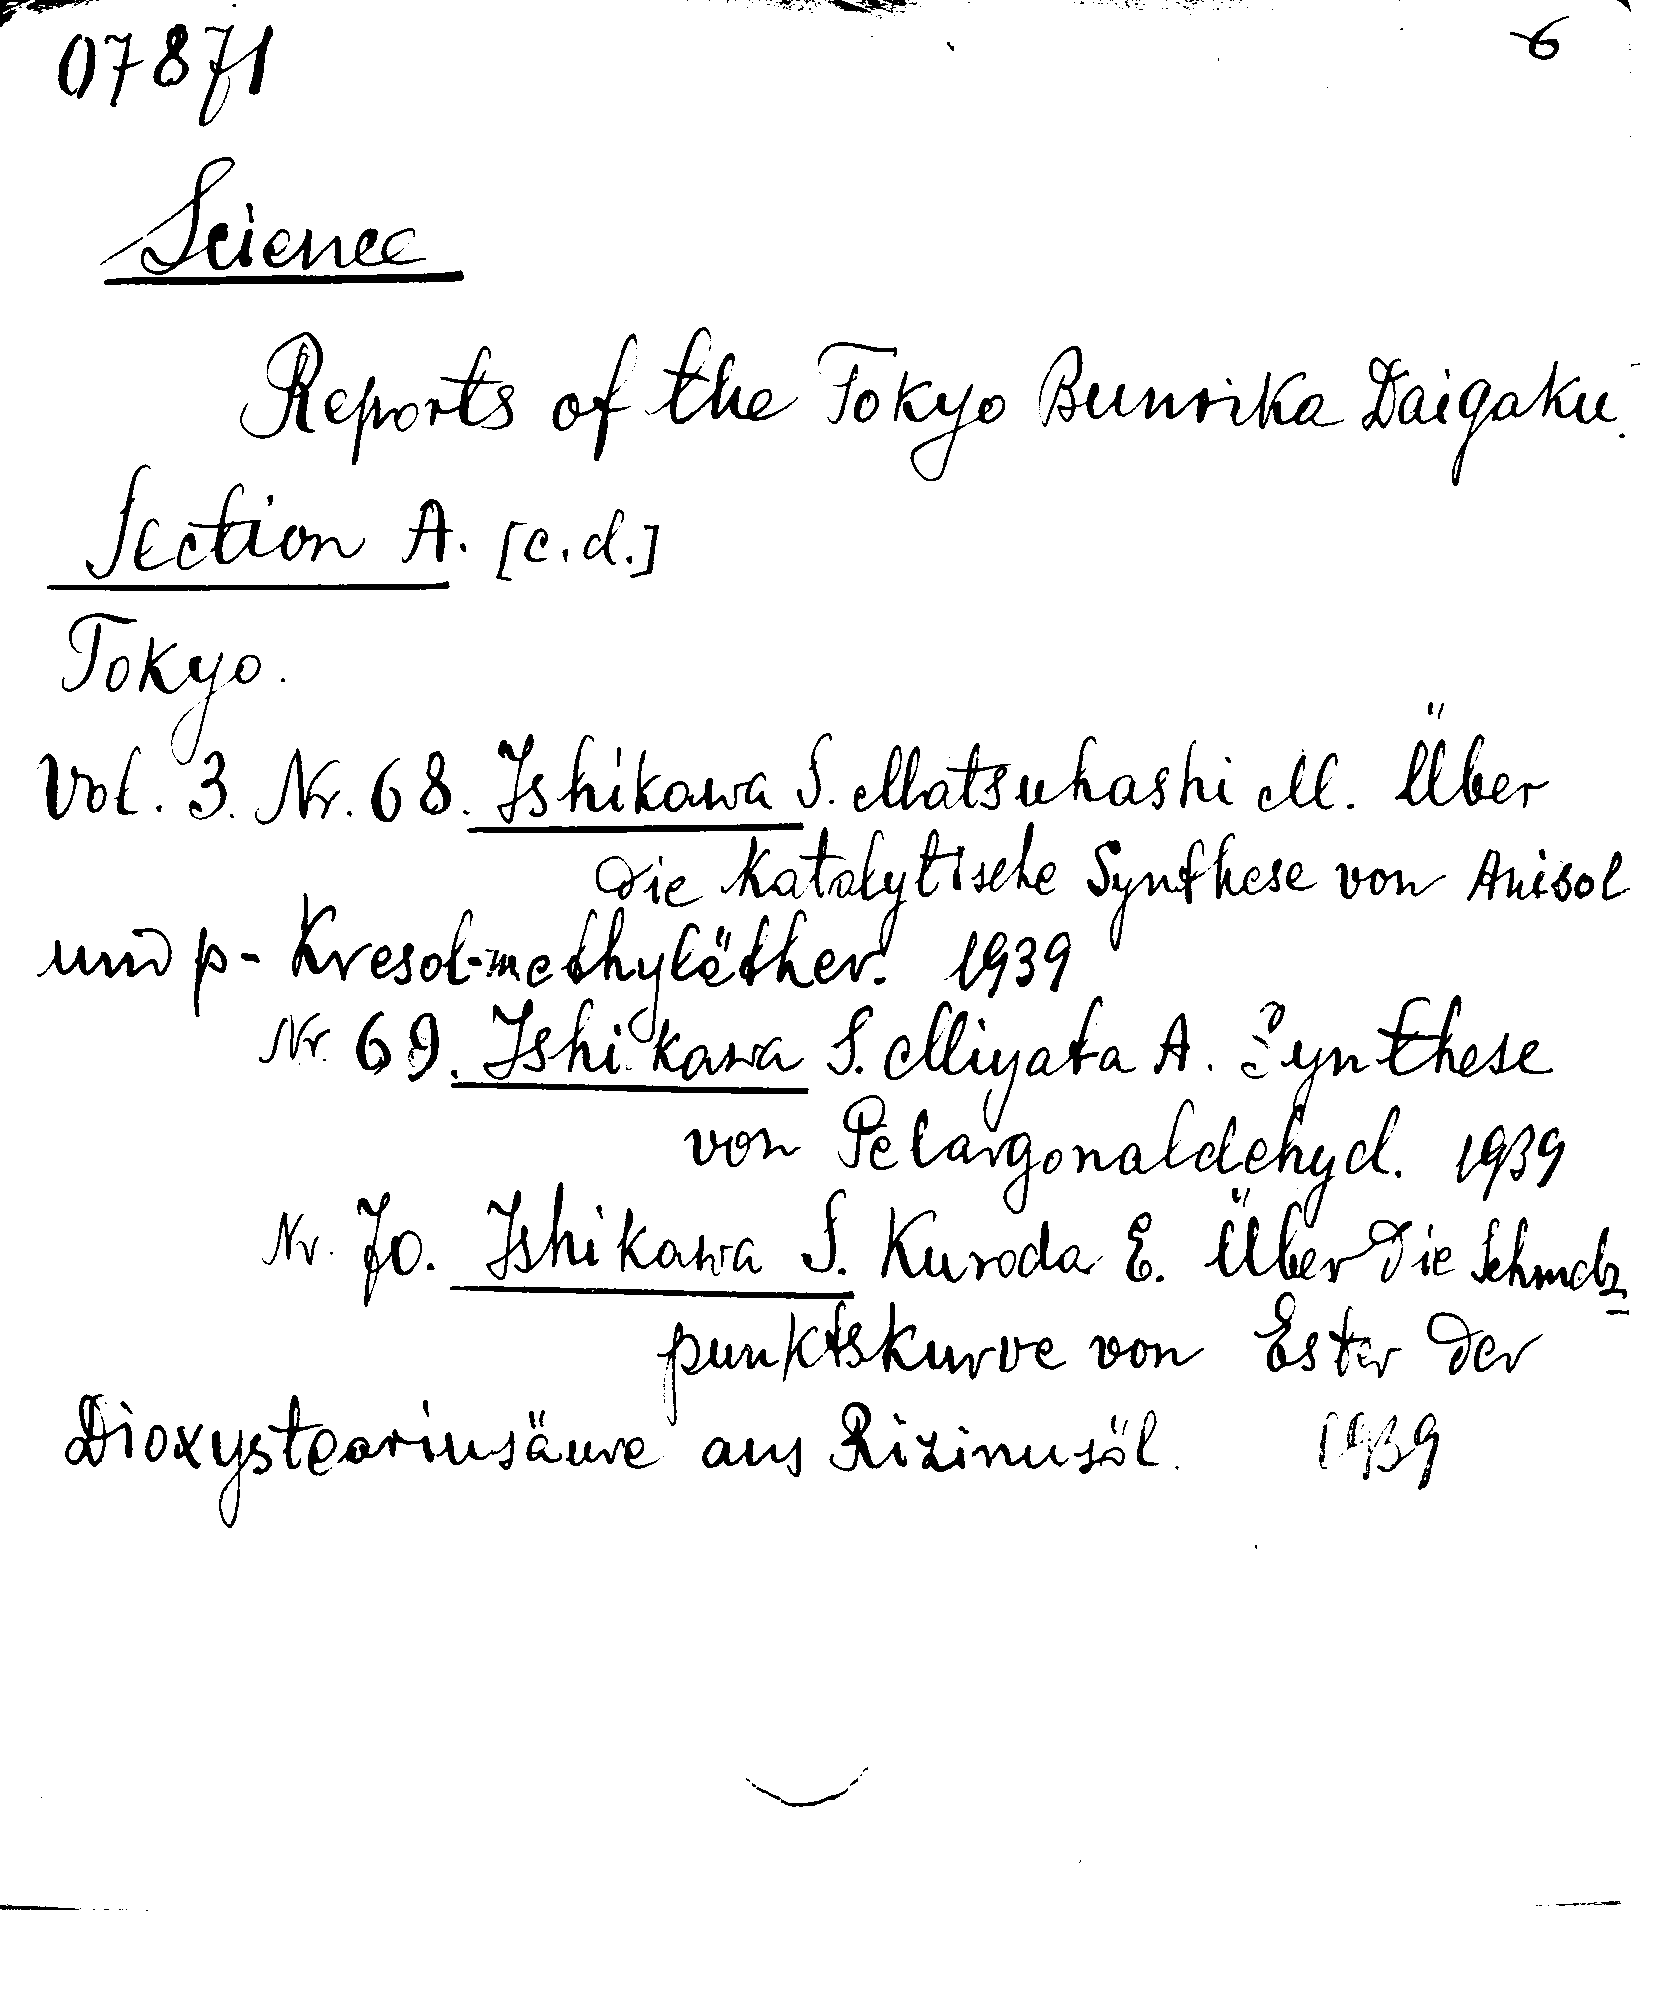 07871 6
Science
Reports of the Tokyo Bunrika Daigaku.
Section A. [c.d.]
Tokyo.
Vol. 3. Nr. 68. Ishikawa S. Matsuhashi M. Über
die katalytische Synthese von Anisol
und p-Kresol-methyläther. 1939
Nr. 69. Ishikawa S. Miyata A. Synthese
von Pelargonaldehyd. 1939
Nr. 70. Ishikawa S. Kuroda E. Über die Schmelz
punktskurve von Ester der
Dioxystearinsäure aus Rizinusöl. 1939